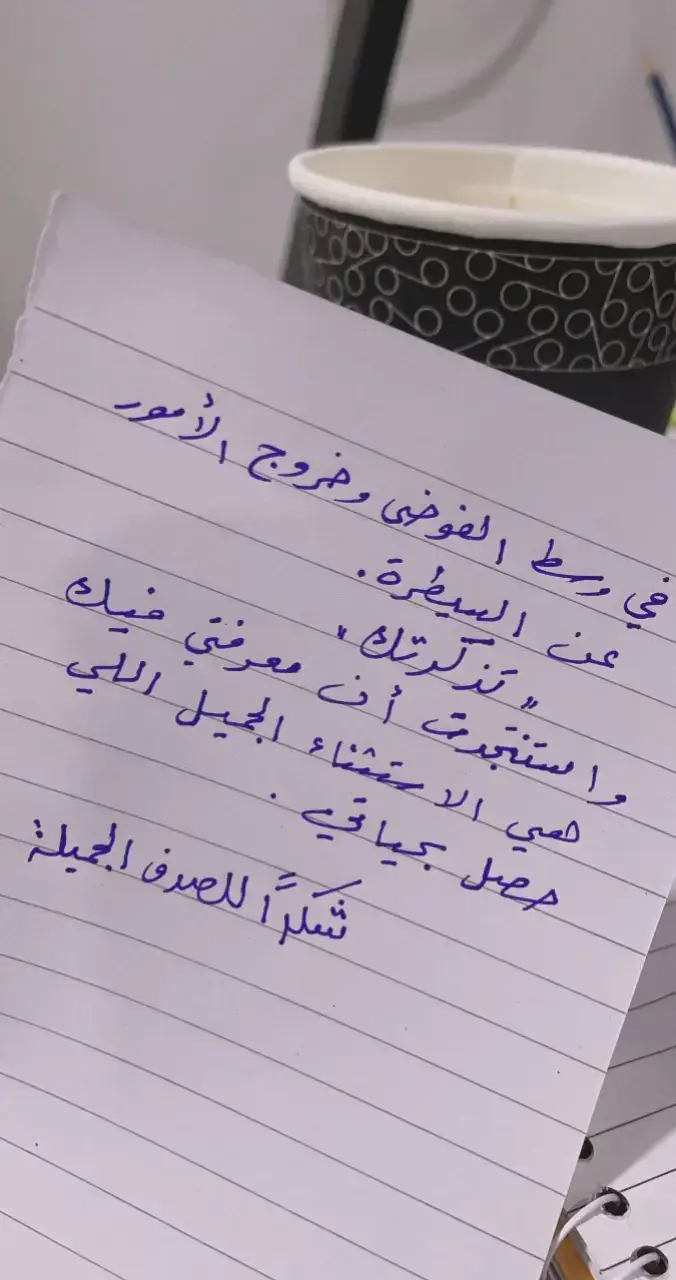 في وسط الفوضى وخروج الأمور
عن السيطرة.
"تذكرتك"
واستنتجت أن معرفتي فيك
هي الاستثناء الجميل اللي
حصل بحياتي.
شكراً للصدف الجميلة